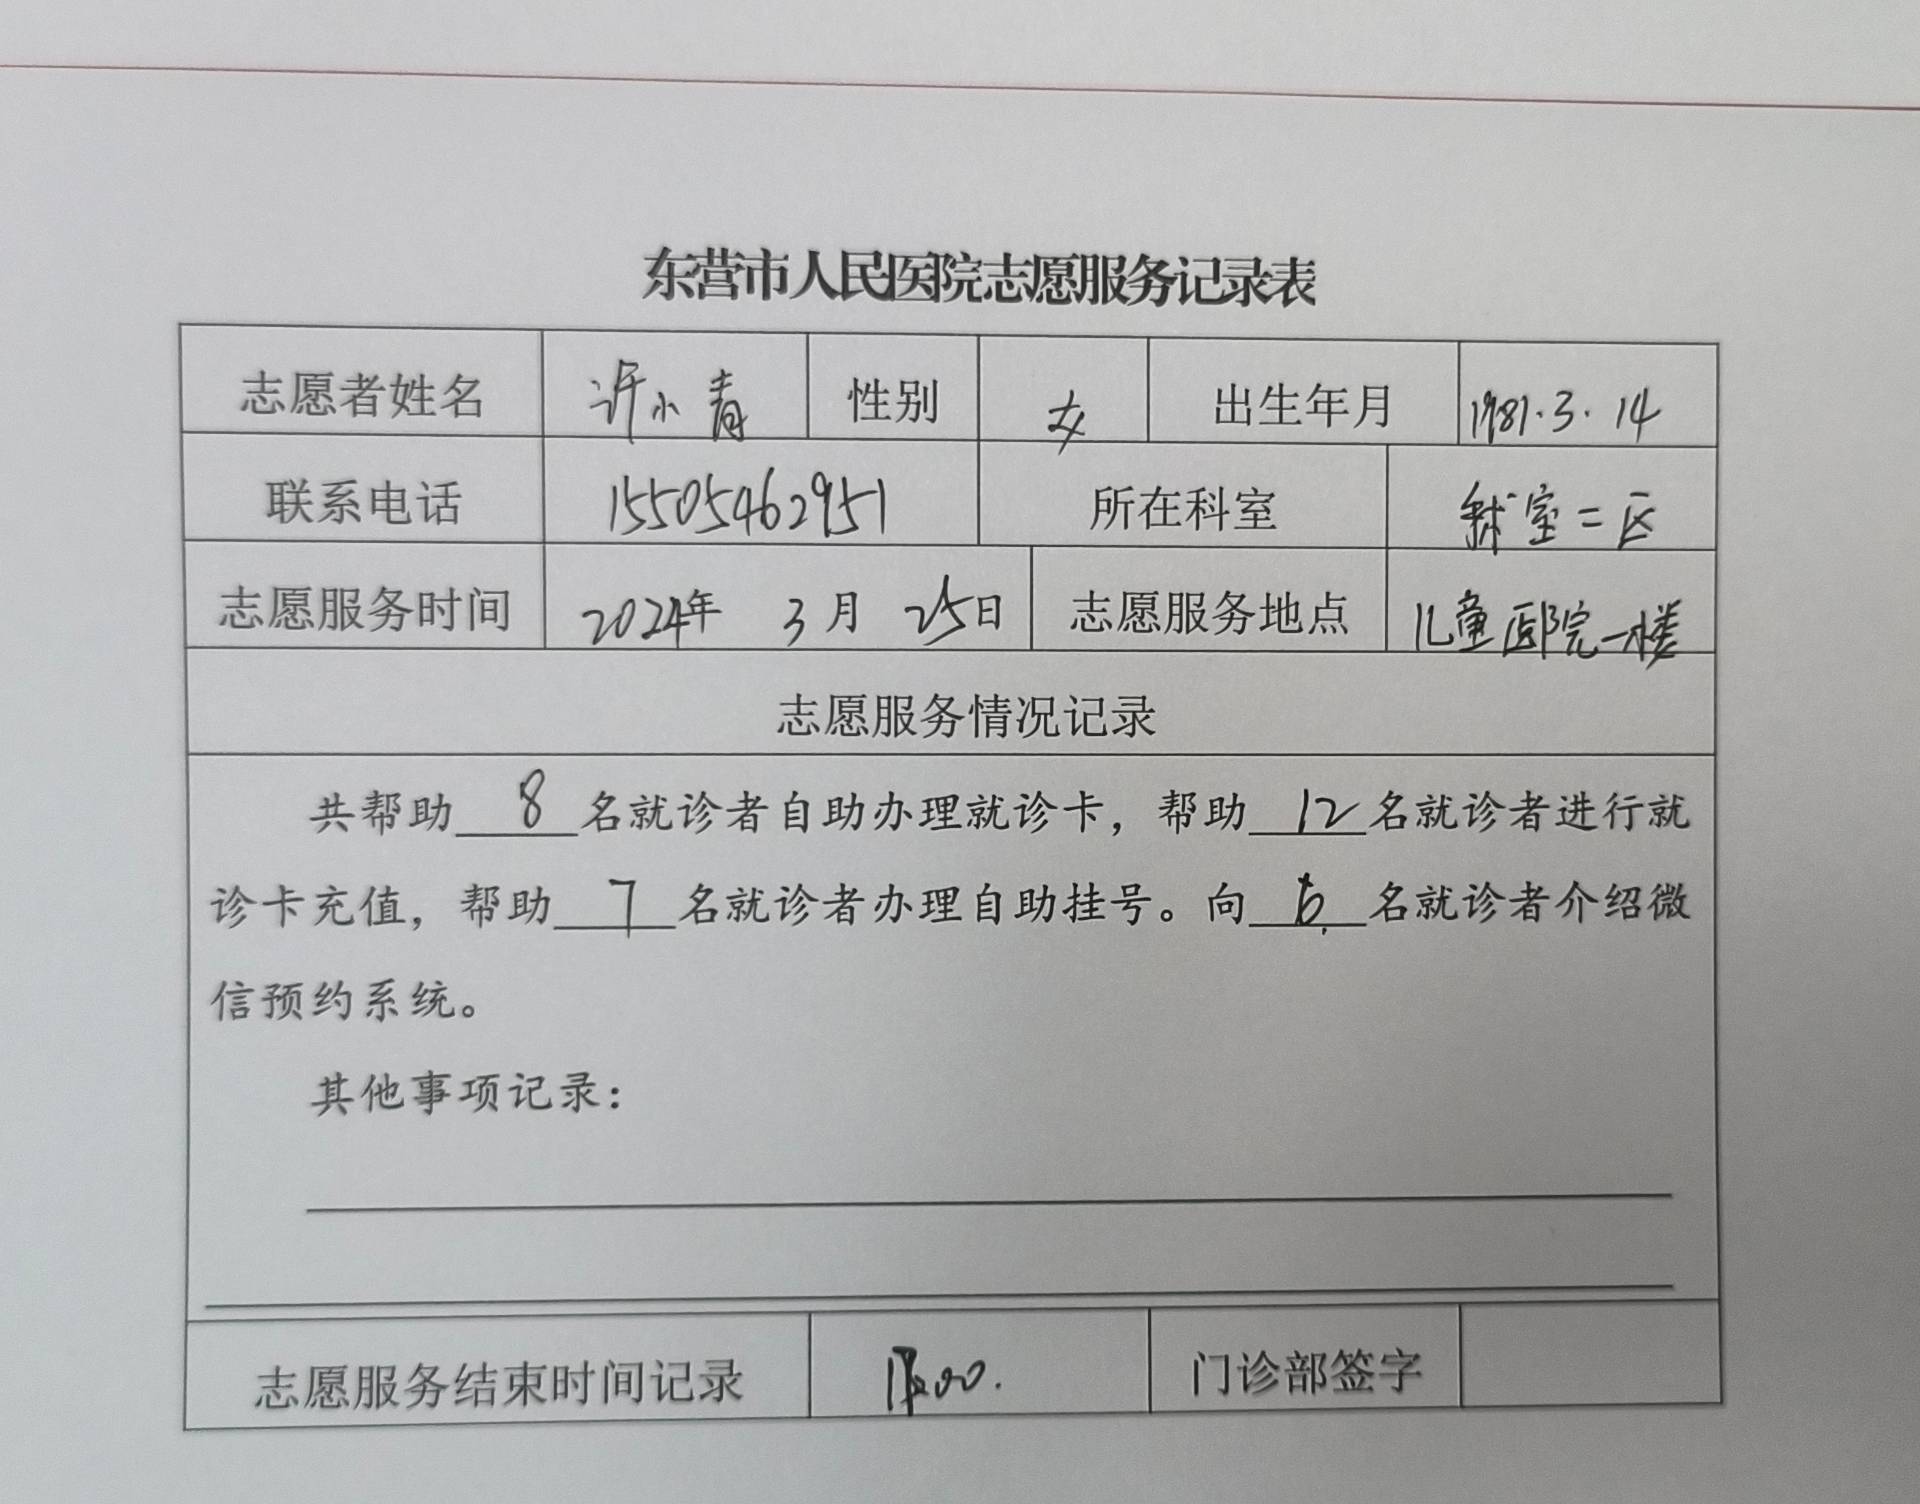 东营市人民医院志愿服务记录表
志愿者姓名 许小青 性别 女 出生年月 1981.3.14
联系电话 15505462951 所在科室 室二区
志愿服务时间 2024年 3月 25日 志愿服务地点 儿童医院一楼
志愿服务情况记录
共帮助 8 名就诊者自助办理就诊卡，帮助 12 名就诊者进行就
诊卡充值，帮助 7 名就诊者办理自助挂号。向 6 名就诊者介绍微
信预约系统。
其他事项记录：
志愿服务结束时间记录 门诊部签字